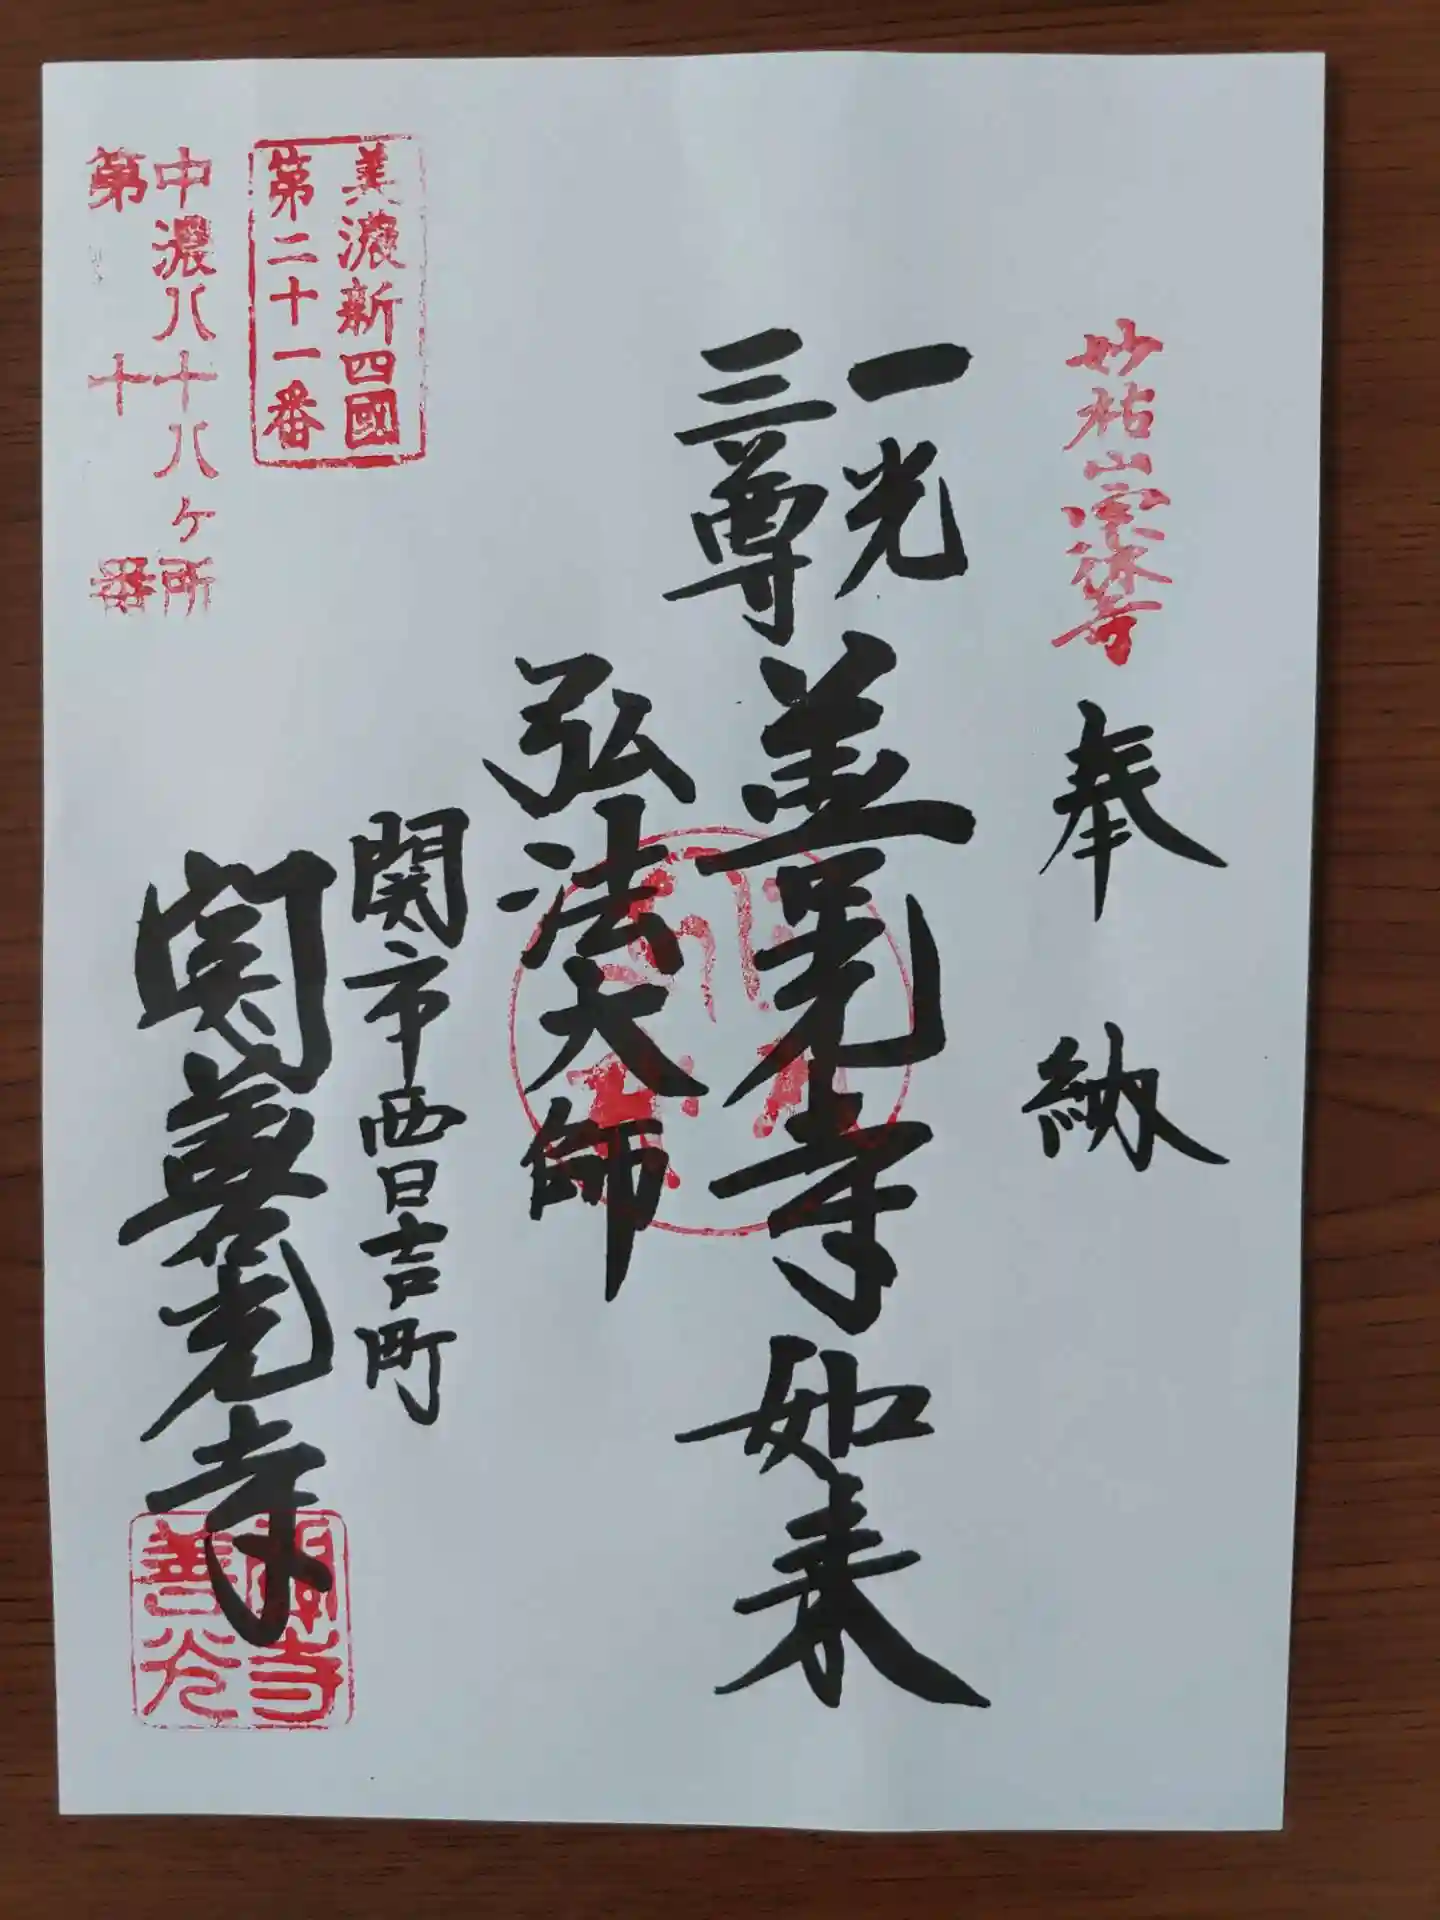 妙祐山宗休寺
奉納
一光
三尊
善光寺如来
弘法大師
美濃新四國
第二十一番
関市西日吉町
関善光寺
中濃八十八ヶ所
第 十 番
關善光寺